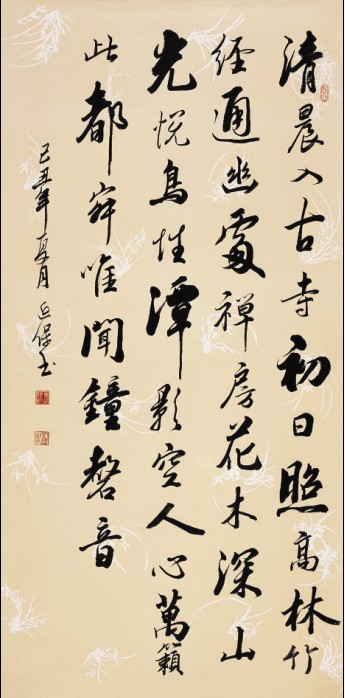 清晨入古寺初日照高林竹
經通幽處禪房花木深山
光悅鳥性潭影空人心萬籟
此都寂唯聞鐘磬音
己丑年夏月保书